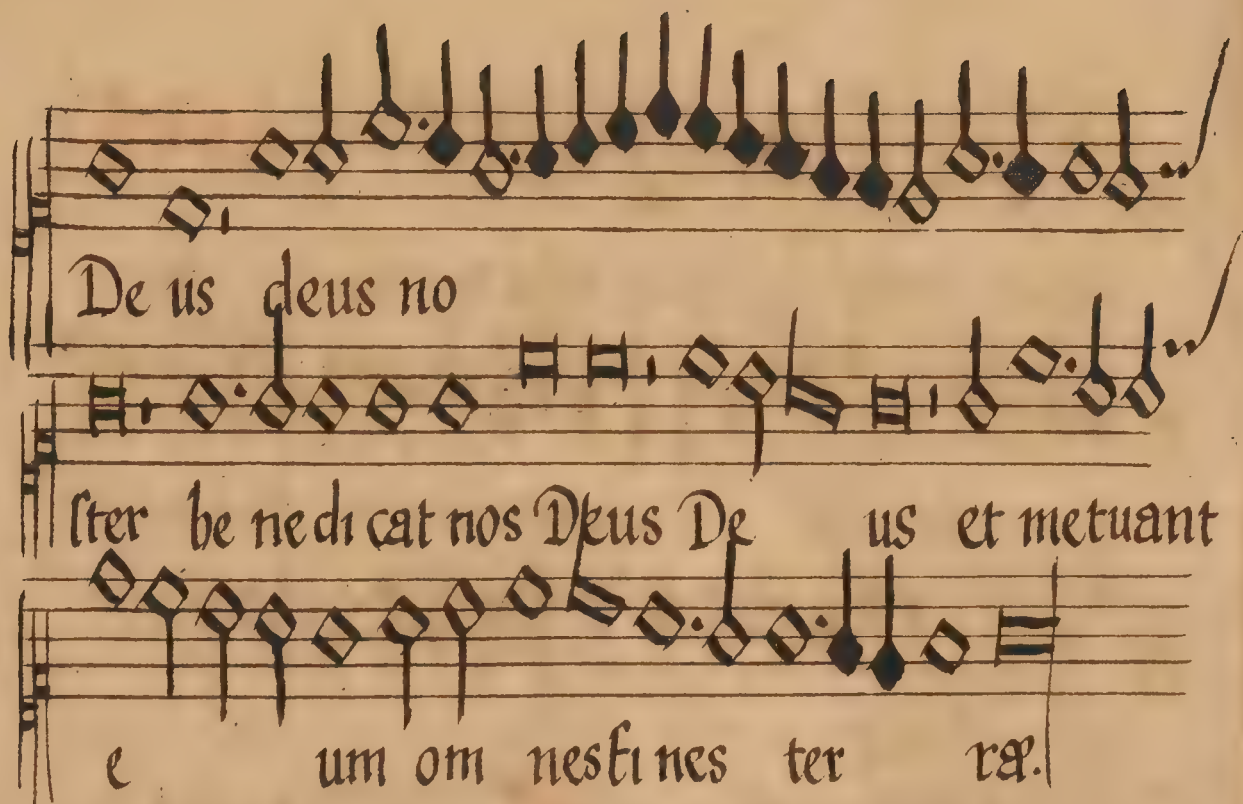 De us deus no
ſter be ne di cat nos Deus De us et metuant
e um om nes fi nes ter ræ.